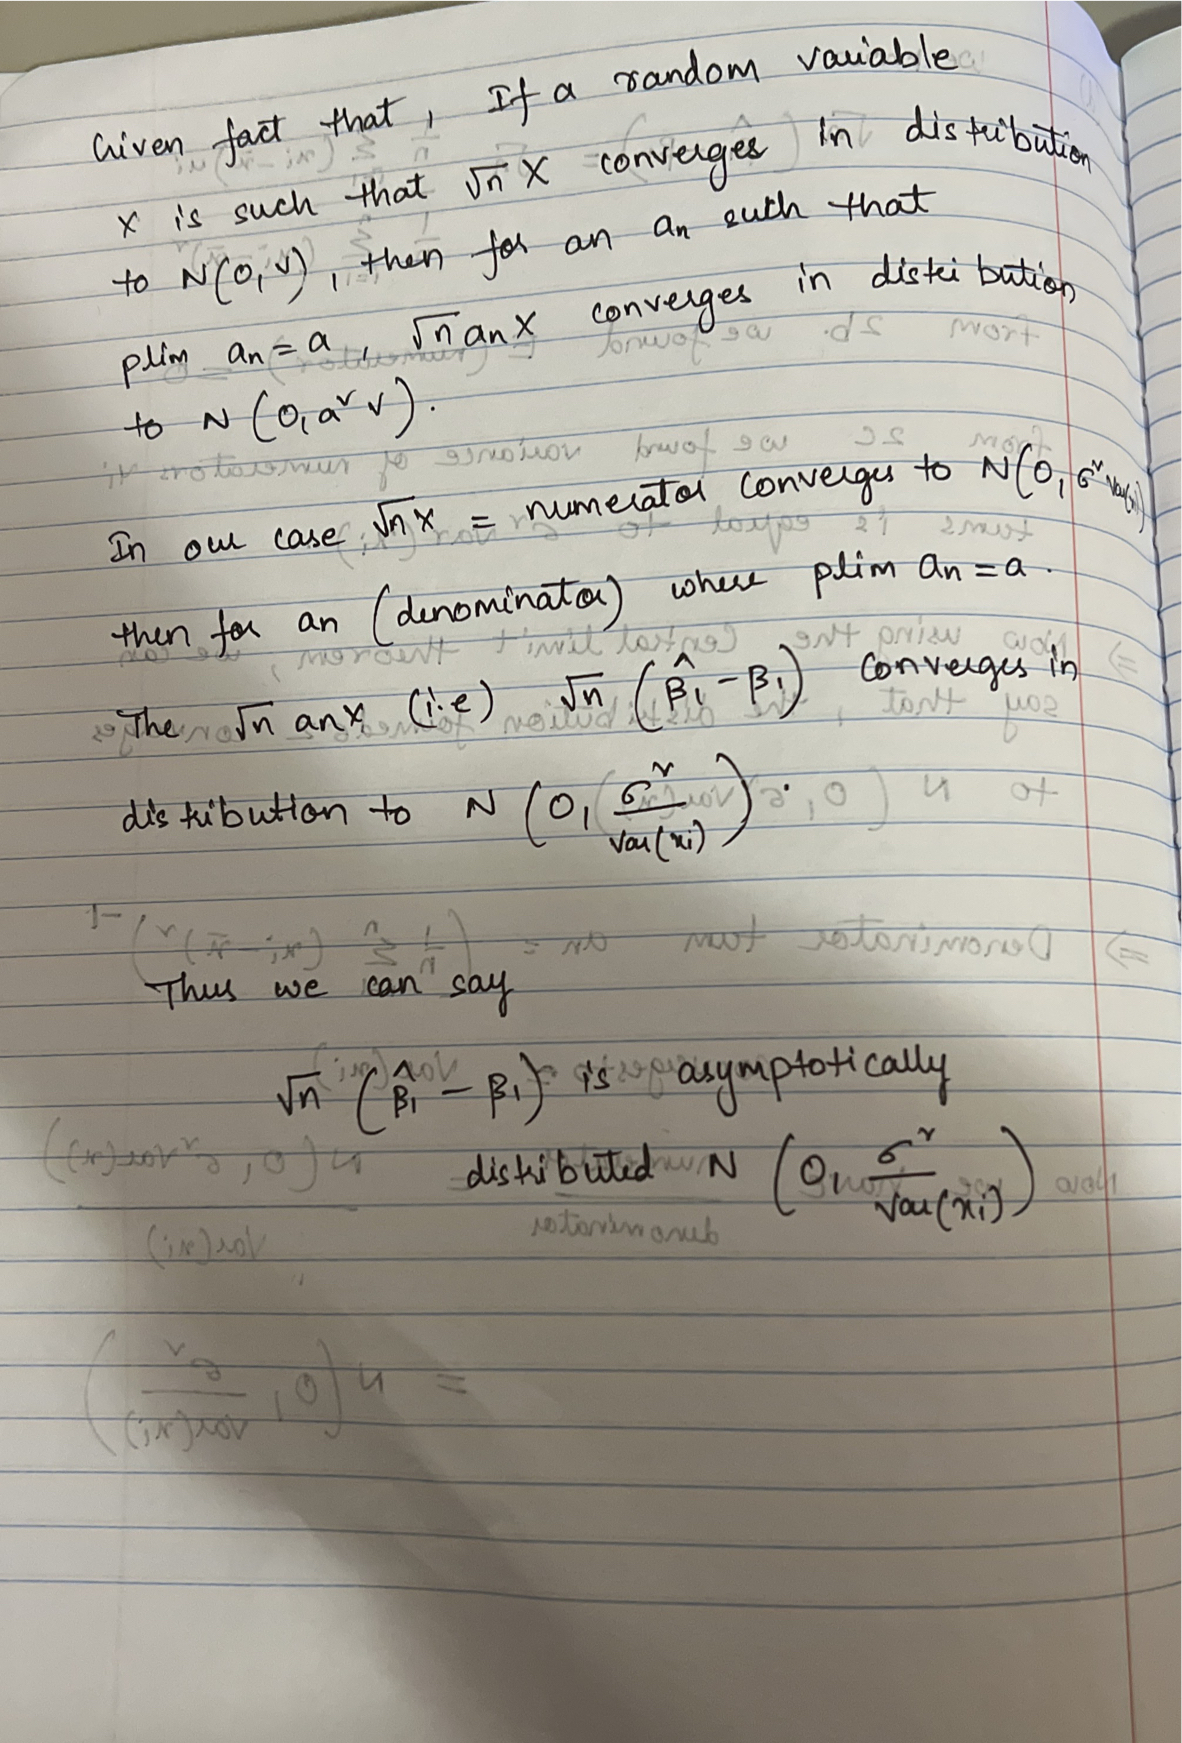 Given fact that, If a random variable
X is such that √n X converges in distribution
to N(0, v), then for an an such that
plim an = a, √n an X converges in distribution
to N (0, a² v).
In our case √n X = numerator converges to N(0, σ² Var(xi))
then for an (denominator) where plim an = a.
The √n anX (i.e) √n (β̂₁ - β₁) converges in
distribution to N (0, σ² / Var(xi)).
Thus we can say
√n (β̂₁ - β₁) is asymptotically
distributed N (0, σ² / Var(xi))